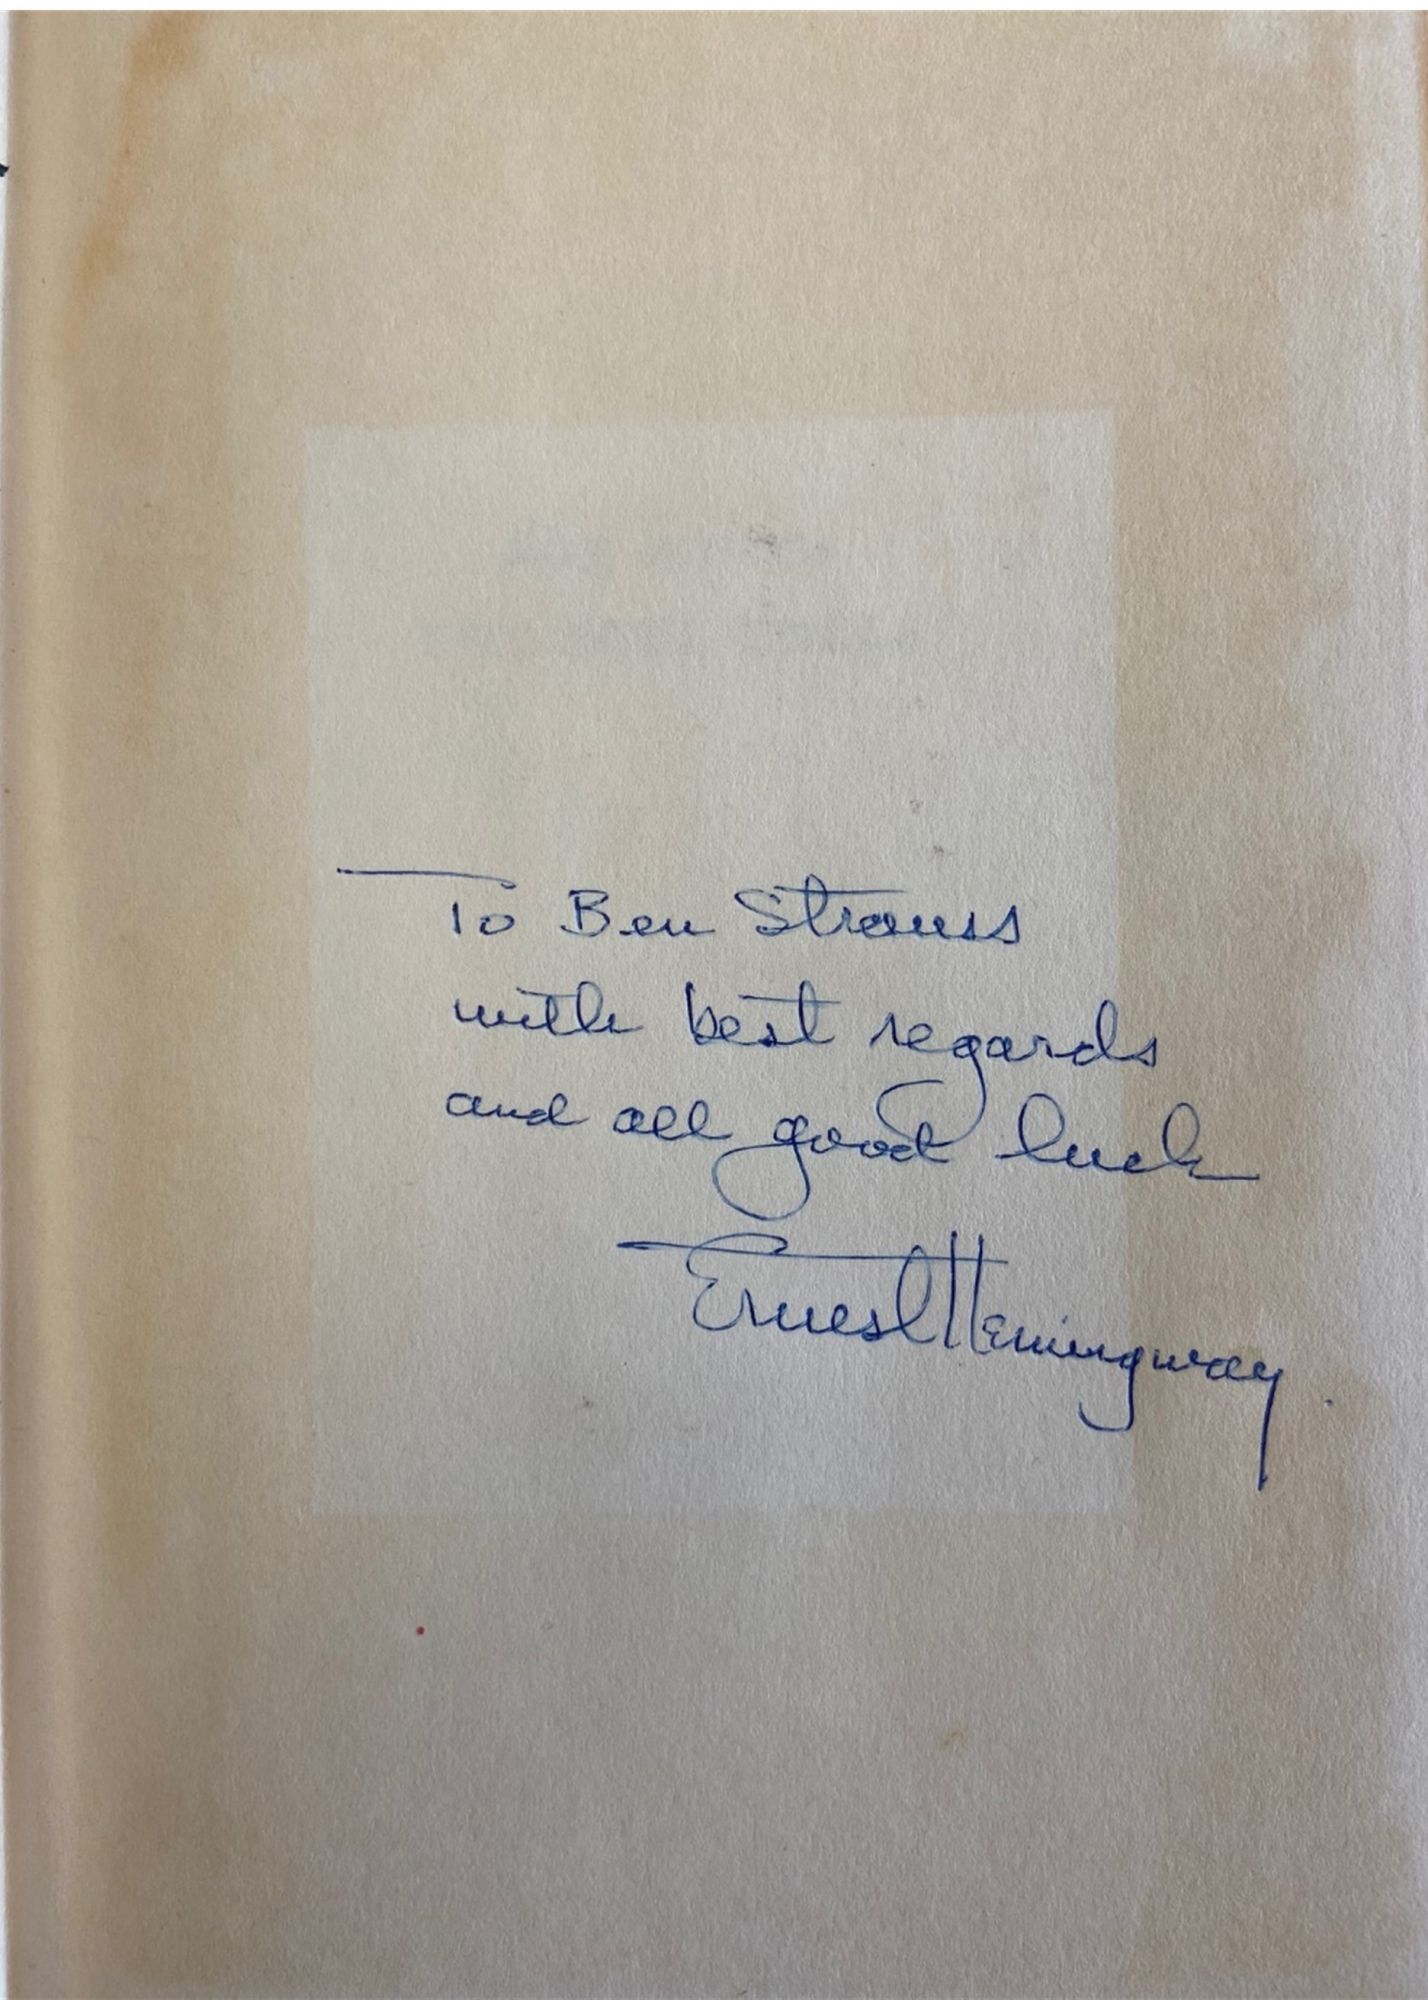 To Ben Strauss
with best regards
and all good luck
Ernest Hemingway.